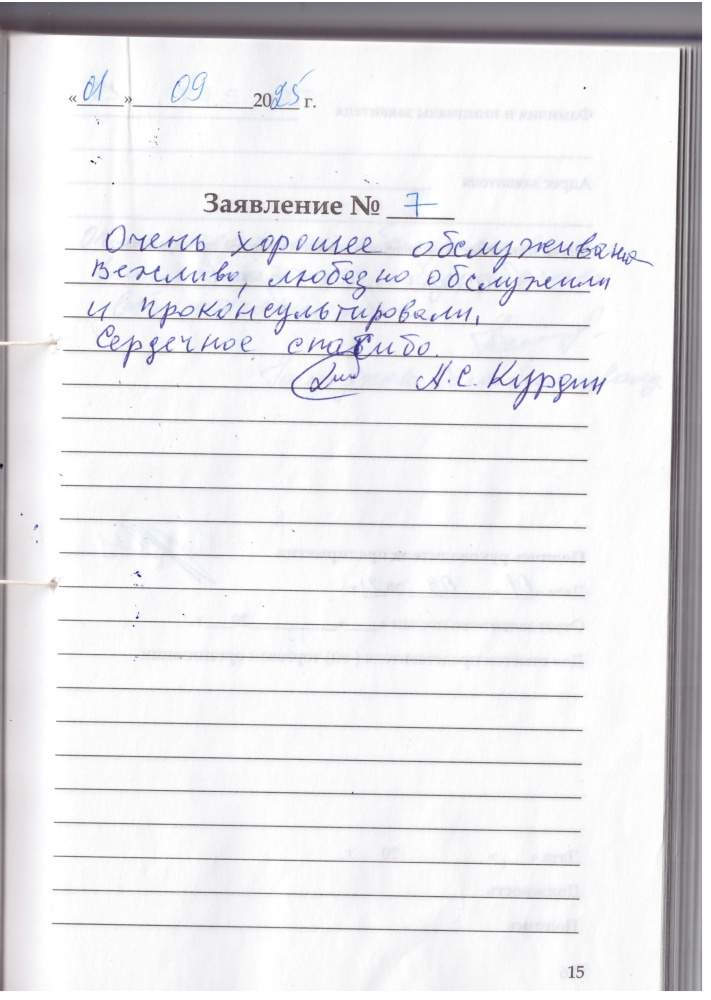 «01» 09 2025 г.
Заявление № 7
Очень хорошее обслуживание
Вежливо, любезно обслужили
и проконсультировали.
Сердечное спасибо.
А.С. Курдин
15